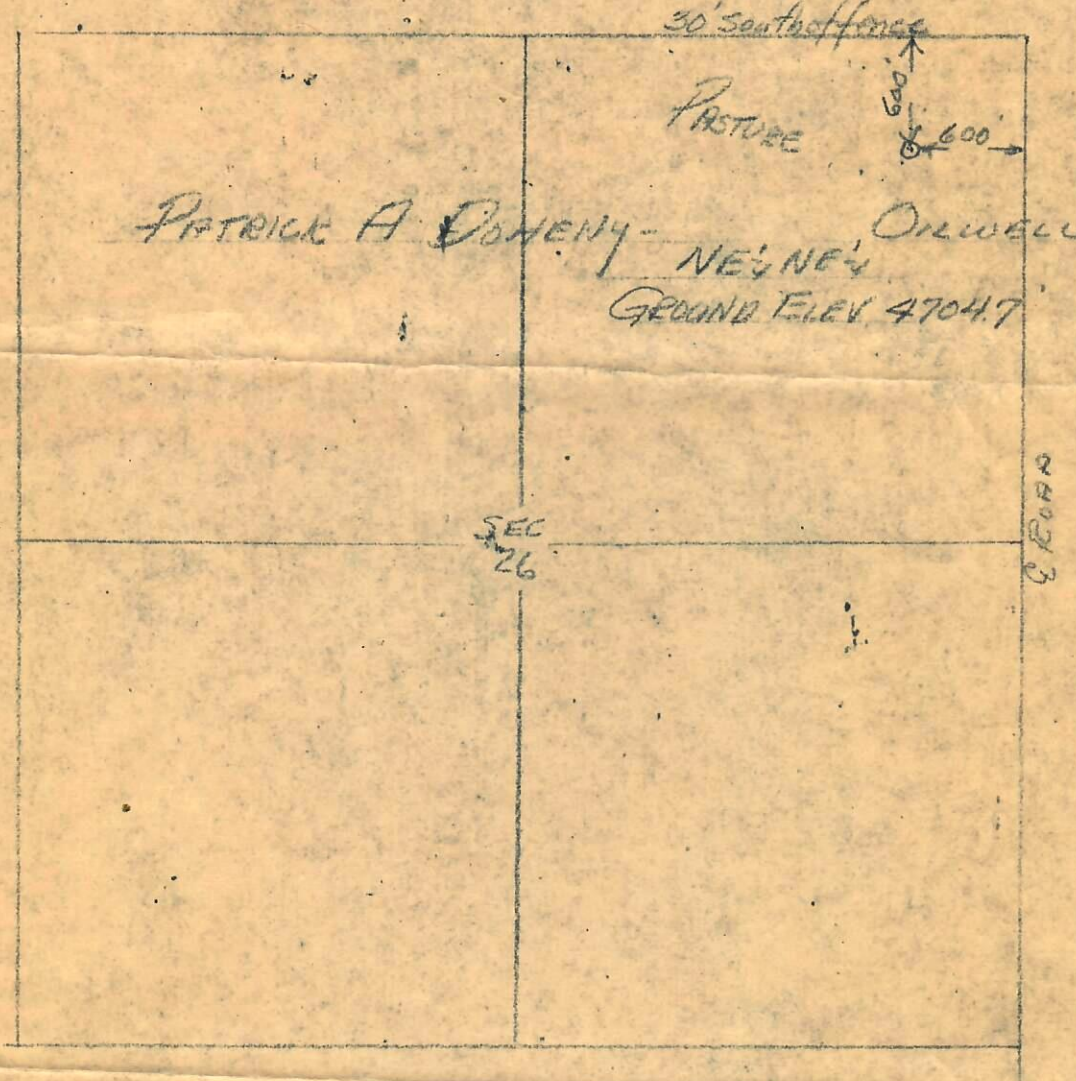 30' South of fence
600'
PASTURE
600'
PATRICK A DOHENY- OILWELL
NE¼ NE¼
GROUND ELEV. 4704.7'
ROAD
SEC
26